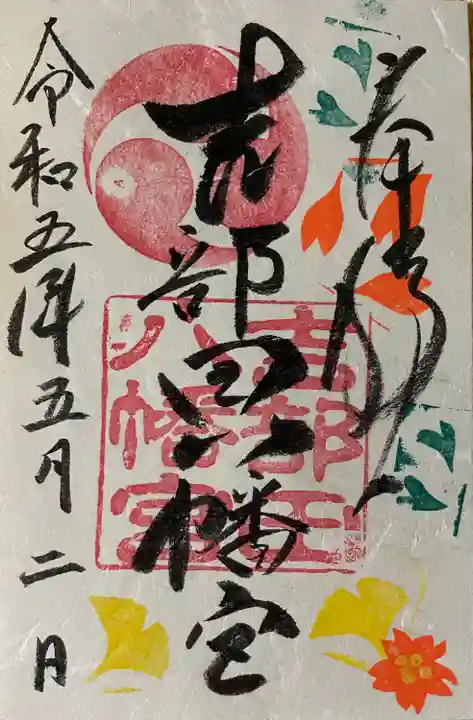 奉拝
吉部田八幡宮
吉部田
八幡宮
令和五年五月二日